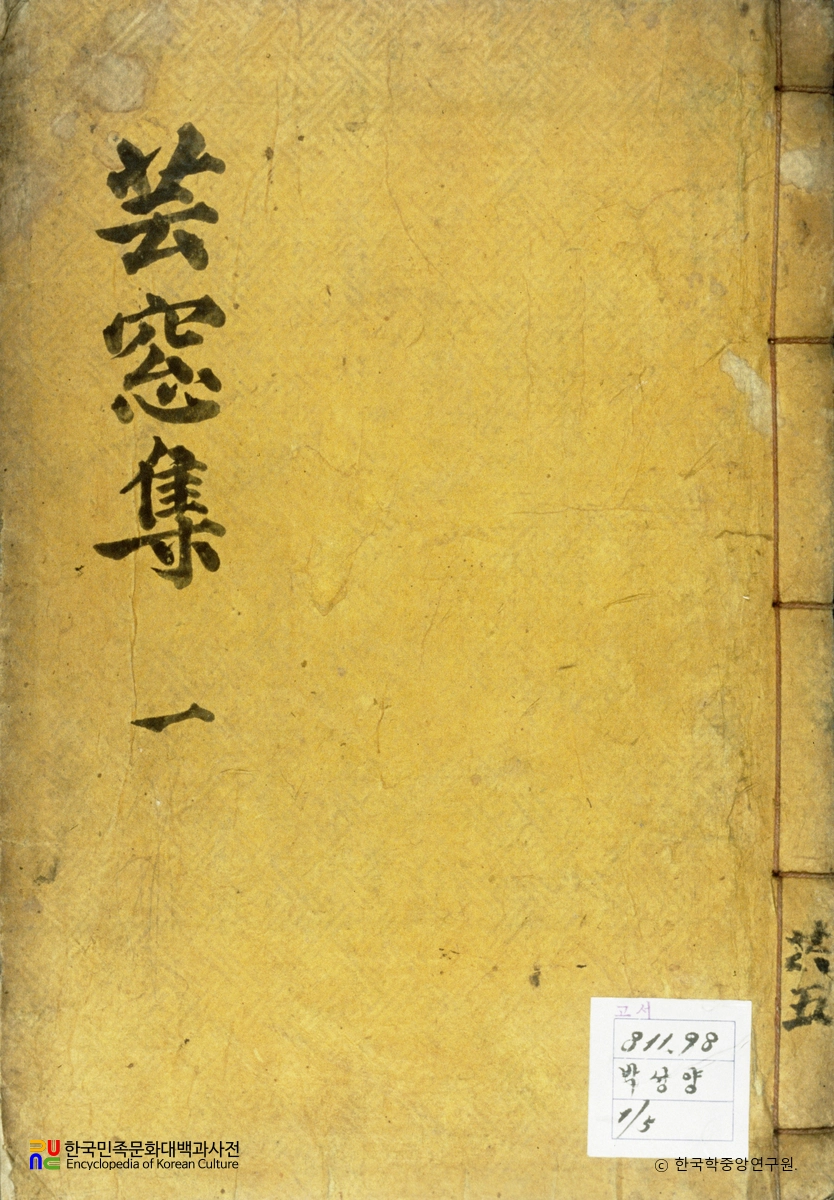 芸窓集 一
共五
고서
811.98
박상양
1/5
한국민족문화대백과사전
Encyclopedia of Korean Culture
ⓒ 한국학중앙연구원.